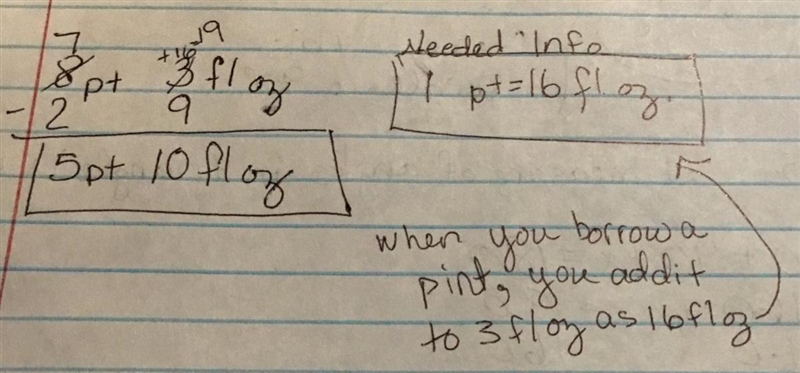 7 +16 19
8pt 3fl oz
- 2 9
5pt 10fl oz
Needed Info
1 pt=16fl oz.
when you borrow a
pint, you add it
to 3floz as 16floz